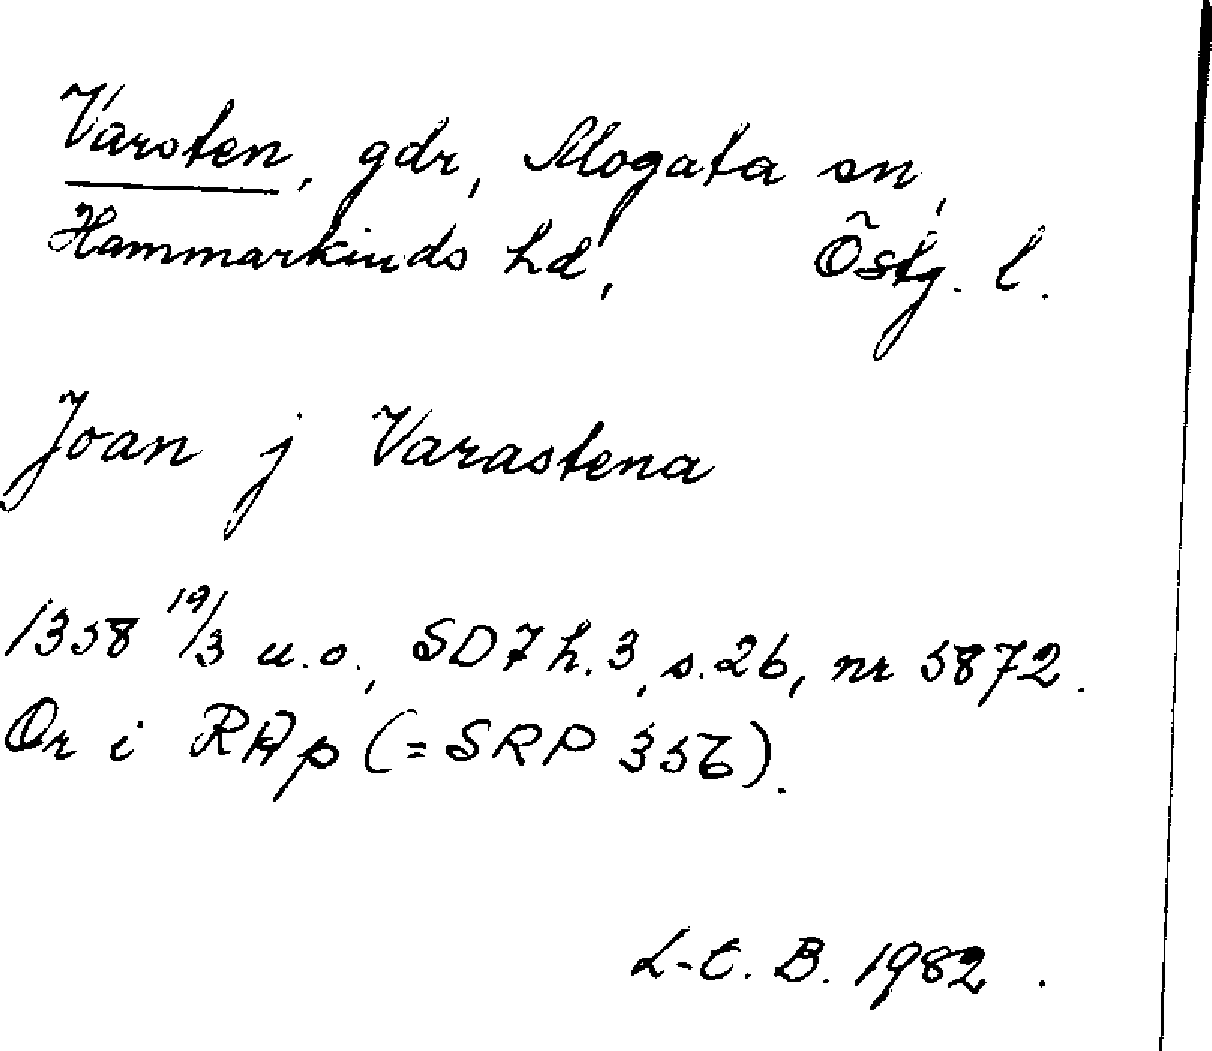 Varsten, gdr, Mogata sn,
Hammarkinds hd, Östg. l.
Joan j Varastena
1358 19/3 u.o., SD7 h.3, s.26, nr 5872.
Or i RAp (=SRP 356).
L-E. B. 1982.